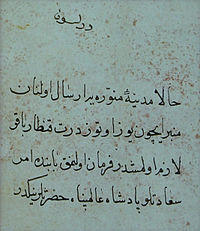 ویرلسون
حالا مدینهٔ منوره یه ارسال اولنان
منبر ایچون یوز اوتوز درت قنطار باقر
لازم اولمشدر فرمان اولنمق بابنده امر
سعادتلو پادشاه عالمپناه حضرتلرینکدر